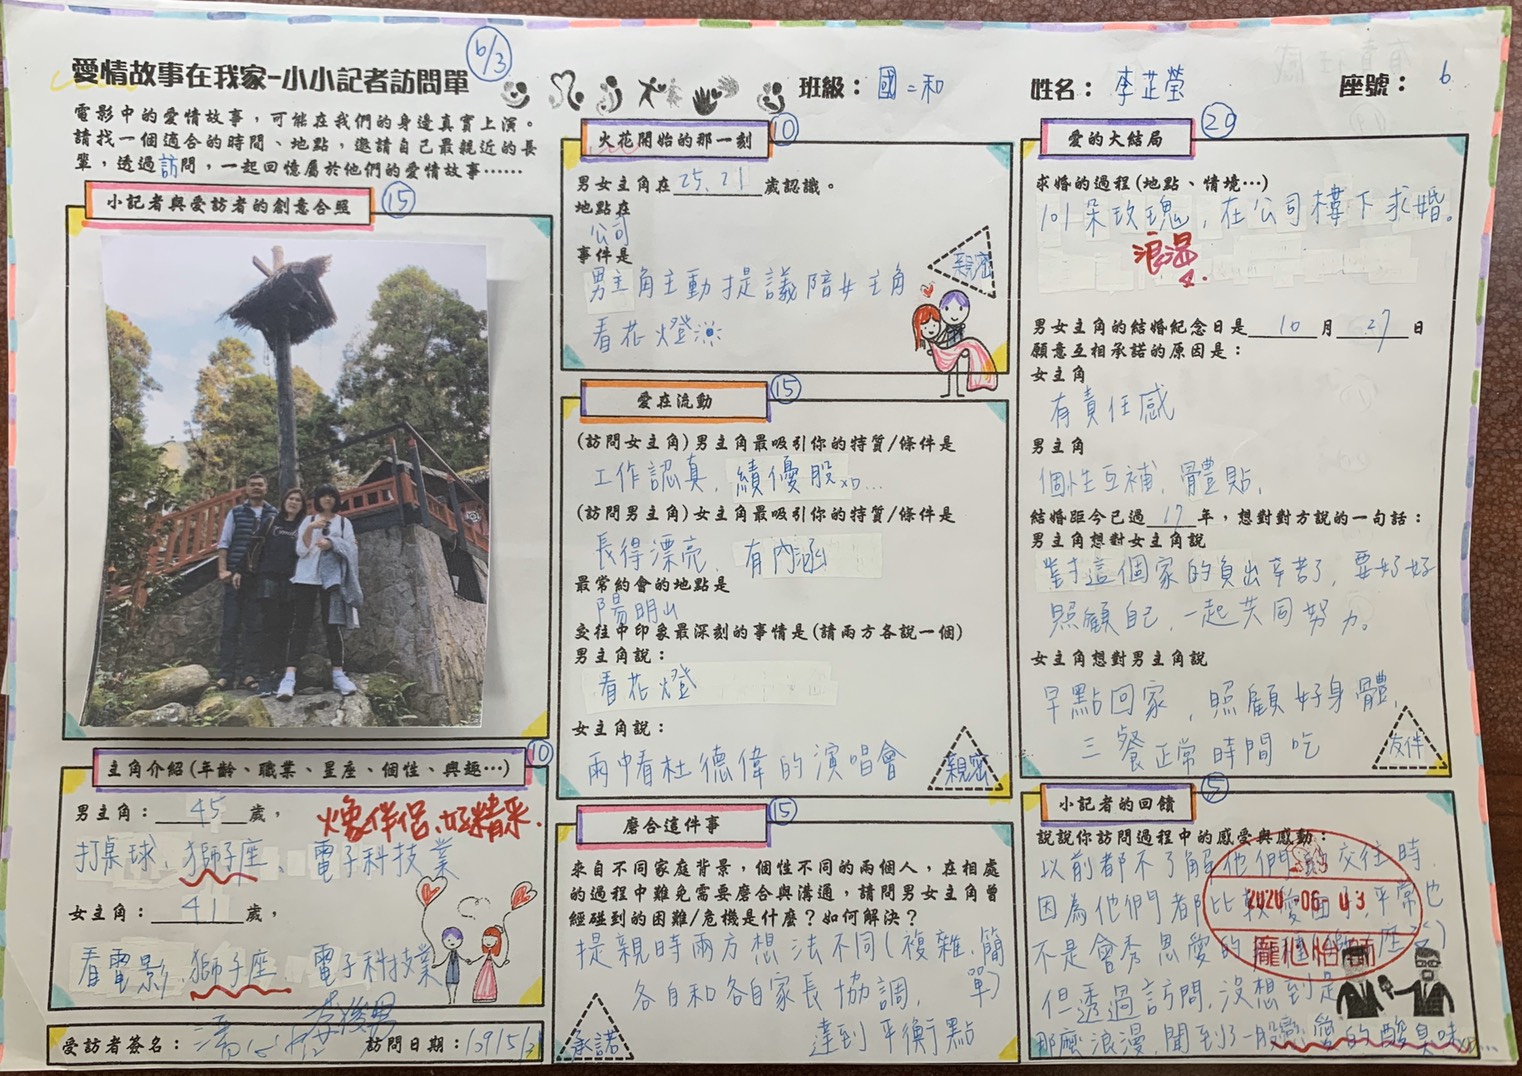 愛情故事在我家-小小記者訪問單
6/3
班級：國二和
姓名：李芷瑩
座號：6
電影中的愛情故事，可能在我們的身邊真實上演。
請找一個適合的時間、地點，邀請自己最親近的長
輩，透過訪問，一起回憶屬於他們的愛情故事……
小記者與受訪者的創意合照
15
主角介紹(年齡、職業、星座、個性、興趣…)
10
男主角：45歲，
火象伴侶，好精采.
打桌球、獅子座、電子科技業
女主角：41歲，
看電影.獅子座、電子科技業
受訪者簽名：
李俊男
訪問日期：109/5/
火花開始的那一刻
10
男女主角在25、21歲認識。
地點在
公司
事件是
男主角主動提議陪女主角
看花燈
親密
愛在流動
15
(訪問女主角)男主角最吸引你的特質/條件是
工作認真，績優股XD...
(訪問男主角)女主角最吸引你的特質/條件是
長得漂亮、有內涵
最常約會的地點是
陽明山
交往中印象最深刻的事情是(請兩方各說一個)
男主角說：
看花燈
女主角說：
雨中看杜德偉的演唱會
親密
磨合這件事
15
來自不同家庭背景，個性不同的兩個人，在相處
的過程中難免需要磨合與溝通，請問男女主角曾
經碰到的困難/危機是什麼？如何解決？
提親時兩方想法不同(複雜.簡
單)
各自和各自家長協調，
達到平衡點
承諾
愛的大結局
20
求婚的過程(地點、情境…)
101朵玫瑰，在公司樓下求婚。
浪漫
男女主角的結婚紀念日是10月27日
願意互相承諾的原因是：
女主角
有責任感
男主角
個性互補，體貼，
結婚距今已過17年，想對對方說的一句話：
男主角想對女主角說
對這個家的負出辛苦了，要好好
照顧自己，一起共同努力。
女主角想對男主角說
早點回家，照顧好身體，
三餐正常時間吃
友伴
小記者的回饋
5
說說你訪問過程中的感受與感動：
以前都不了解他們的交往時，
因為他們都比較愛面子，平常也
不是會秀恩愛的
但透過訪問，沒想到是
那麼浪漫，聞到了一股戀愛的酸臭味XD...
2020.06.03
龐心怡師